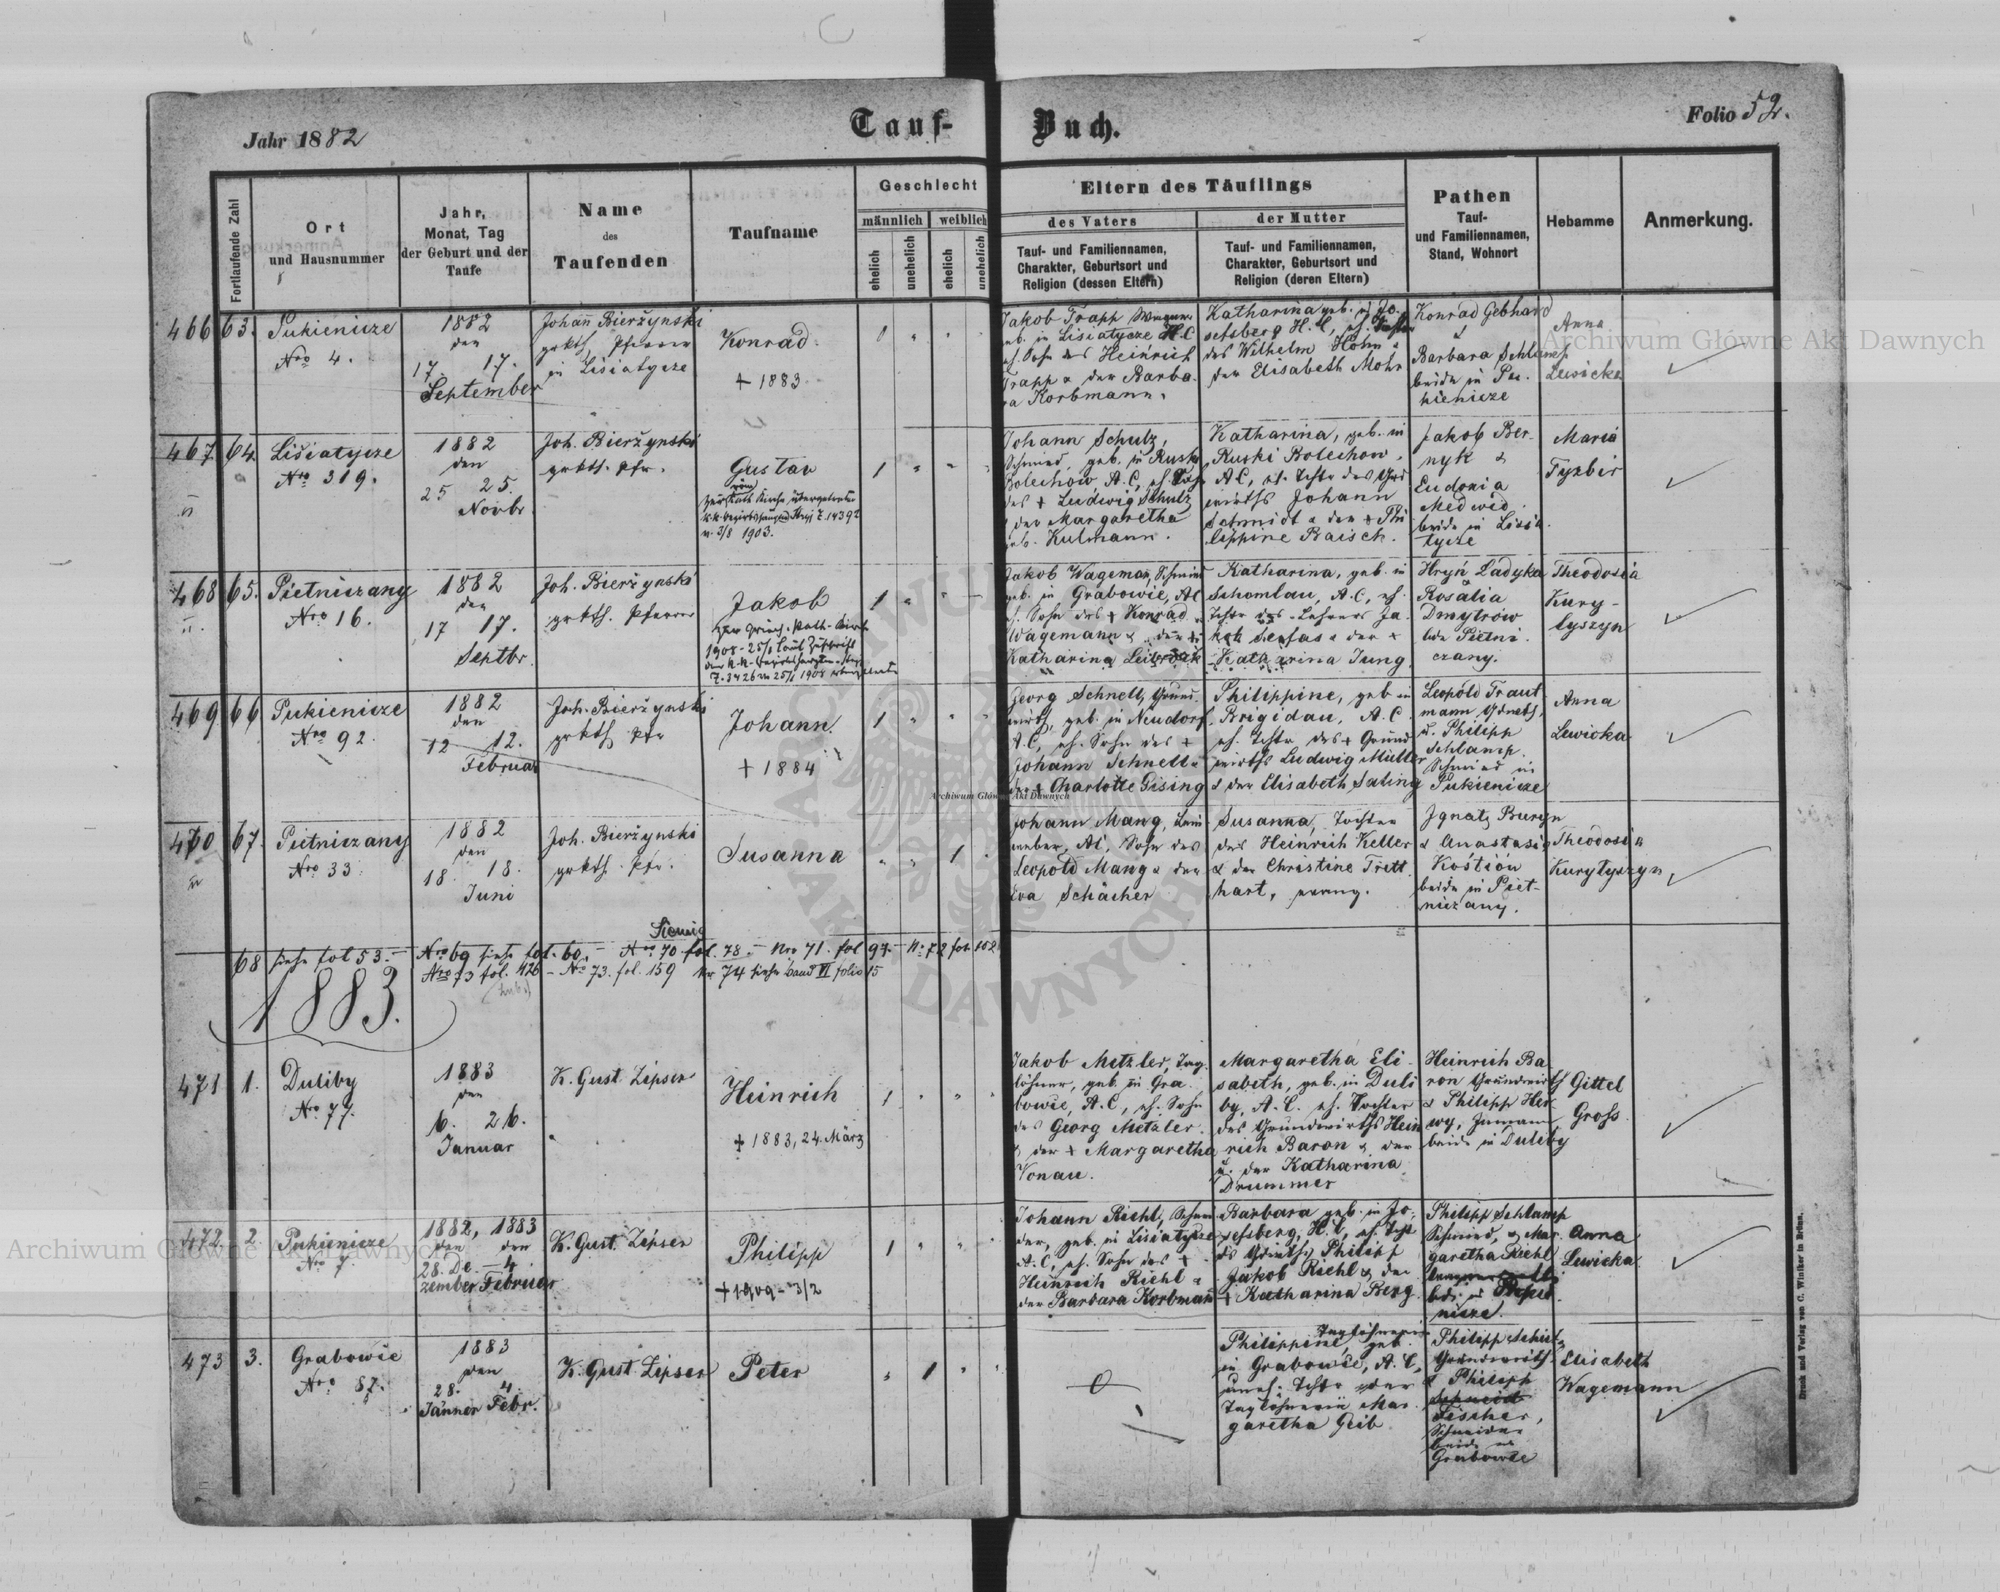 Jahr 1882
Tauf-Buch.
Folio 52.
Fortlaufende Zahl
Ort
und Hausnummer
Jahr,
Monat, Tag
der Geburt und der
Taufe
Name
des
Taufenden
Taufname
Geschlecht
männlich
weiblich
ehelich
unehelich
ehelich
unehelich
Eltern des Täuflings
des Vaters
Tauf- und Familiennamen,
Charakter, Geburtsort und
Religion (dessen Eltern)
der Mutter
Tauf- und Familiennamen,
Charakter, Geburtsort und
Religion (deren Eltern)
Pathen
Tauf-
und Familiennamen,
Stand, Wohnort
Hebamme
Anmerkung.
466 63.
Pukienicze
Nro 4.
1882
den
17. 17.
September
Johann Bierżynski
grkth. Pfarrer
in Lisiatycze
Konrad
+ 1883
Jakob Trapp
geb. in Lisiatycze H.C.
eh. Sohn des Heinrich
Trapp u der Barba-
ra Korbmann.
Katharina geb. in Jo-
sefsberg H.C., eh. Tochter
des Wilhelm Höhn u
der Elisabeth Mohr
Konrad Gebhard
&
Barbara Schlamp
beide in Pu-
kienicze
Anna
Lewicka
467 64.
Lisiatycze
Nro 319.
1882
den
25 25.
Novbr
Joh. Bierżynski
grkth. Pfr.
Gustav
1903.
Johann Schulz,
Schmied, geb. in Ruski
Bolechow A.C, eh. Sohn
des + Ludwig Schulz
u der Margaretha
geb. Kulmann.
Katharina, geb. in
Ruski Bolechow,
A.C., eh. Tchtr des Grd
wirths Johann
Schmidt u der + Phi
lippine Raisch.
Jakob Ber-
nyk &
Eudoxia
Medwid
beide in Lisia
tycze
Maria
Tyzbir
468 65.
Pietniszany
Nro 16.
1882
den
17 17.
Septbr.
Joh. Bierżynski
grkth. Pfarrer
Jakob
Jakob Wageman, Schmied
geb. in Grabowie, AC
eh. Sohn des + Konrad
Wagemann u der +
Katharina
Katharina, geb. in
Schomlau, A.C, eh.
Tchtr des Lehrers Ja-
kob u der +
Katharina Jung
Hryń Ladyka
Rosalia
Dmytrów
bde Pietni-
czany.
Theodosia
Kury-
tyszyn
469 66
Pukienicze
Nro 92.
1882
den
12 12.
Februar
Joh. Bierżynski
grkth Pfr
Johann
+ 1884
Georg Schnell, Grund
wirth, geb. in Neudorf
A.C, eh. Sohn des +
Johann Schnell u
der + Charlotte Gising
Philippine, geb in
Brigidau, A.C.
eh. Tchtr des + Grund
wirths Ludwig Müller
u der Elisabeth Saling
Leopold Traut
mann Grwth,
u. Philipp
Schlamp
Schmied in
Pukienicze
Anna
Lewicka
470 67.
Pietniczany
Nro 33
1882
den
18 18.
Juni
Joh. Bierżynski
grkth. Pfr.
Susanna
Johann Mang, Lein
weber, AC, Sohn des
Leopold Mang u der
Eva Schächer
Susanna, Tochter
des Heinrich Keller
u der Christine Trett
hart, evang.
Ignatz Buryn
u Anastasia
Kośtiów
beide in Piet-
niczany.
Theodosia
Kurytyszyn
68 siehe fol 53. – Nro 69 siehe fol. 60. – Nro 70 fol. 78. – Nro 71. fol 97. – No 72 fol. 102
Nro 73 fol. 126 – Nro 73. fol. 159 Nr 74 siehe Band VI folio 15
1883.
471 1.
Duliby
Nro 77.
1883
den
16. 26.
Januar
K. Gust. Zipser
Heinrich
+ 1883, 24. März
Jakob Metzler, Tag-
löhner, geb. in Gra-
bowie, A.C, eh. Sohn
des Georg Metzler
u der + Margaretha
Vonau.
Margaretha Eli-
sabeth, geb. in Duli
by, A.C. eh. Tochter
des Grundwirths Hein
rich Baron u der
u. der Katharina
Drummer
Heinrich Ba
ron Grundwirth
u Philipp Her-
wy,
beide in Duliby
Gittel
Gross
472 2
Pukienicze
Nro 7.
1882, 1883
den den
28. De- 4
zember Februar
K. Gust. Zipser
Philipp
+ 1909 – 3/2
Johann Riehl, Schnei
der, geb. in Lisiatycze
A.C, eh. Sohn des +
Heinrich Riehl u
der Barbara Korbmann
Barbara geb. in Jo-
sefsberg, H.C, eh. Tcht
ds Grwths Philipp
Jakob Riehl u der
+ Katharina Berg
Philipp Schlamp
Schmied, u Mar
garetha Riehl
nicze.
Anna
Lewicka
473 3.
Grabowie
Nro 87.
1883
den
28. 4.
Jänner Febr.
K. Gust. Zipser
Peter
Taglöhnerin
Philippine, geb.
in Grabowie, A.C,
uneh. Tchtr der
Taglöhnerin Mar-
garetha Geib
Philipp
Grundwirth
u Philipp
Fischer,
Schneider
beide in
Grabowie
Elisabeth
Wagemann
Druck und Verlag von C. Winiker in Brünn.
Archiwum Główne Akt Dawnych
Archiwum Główne Akt Dawnych
Archiwum Główne Akt Dawnych